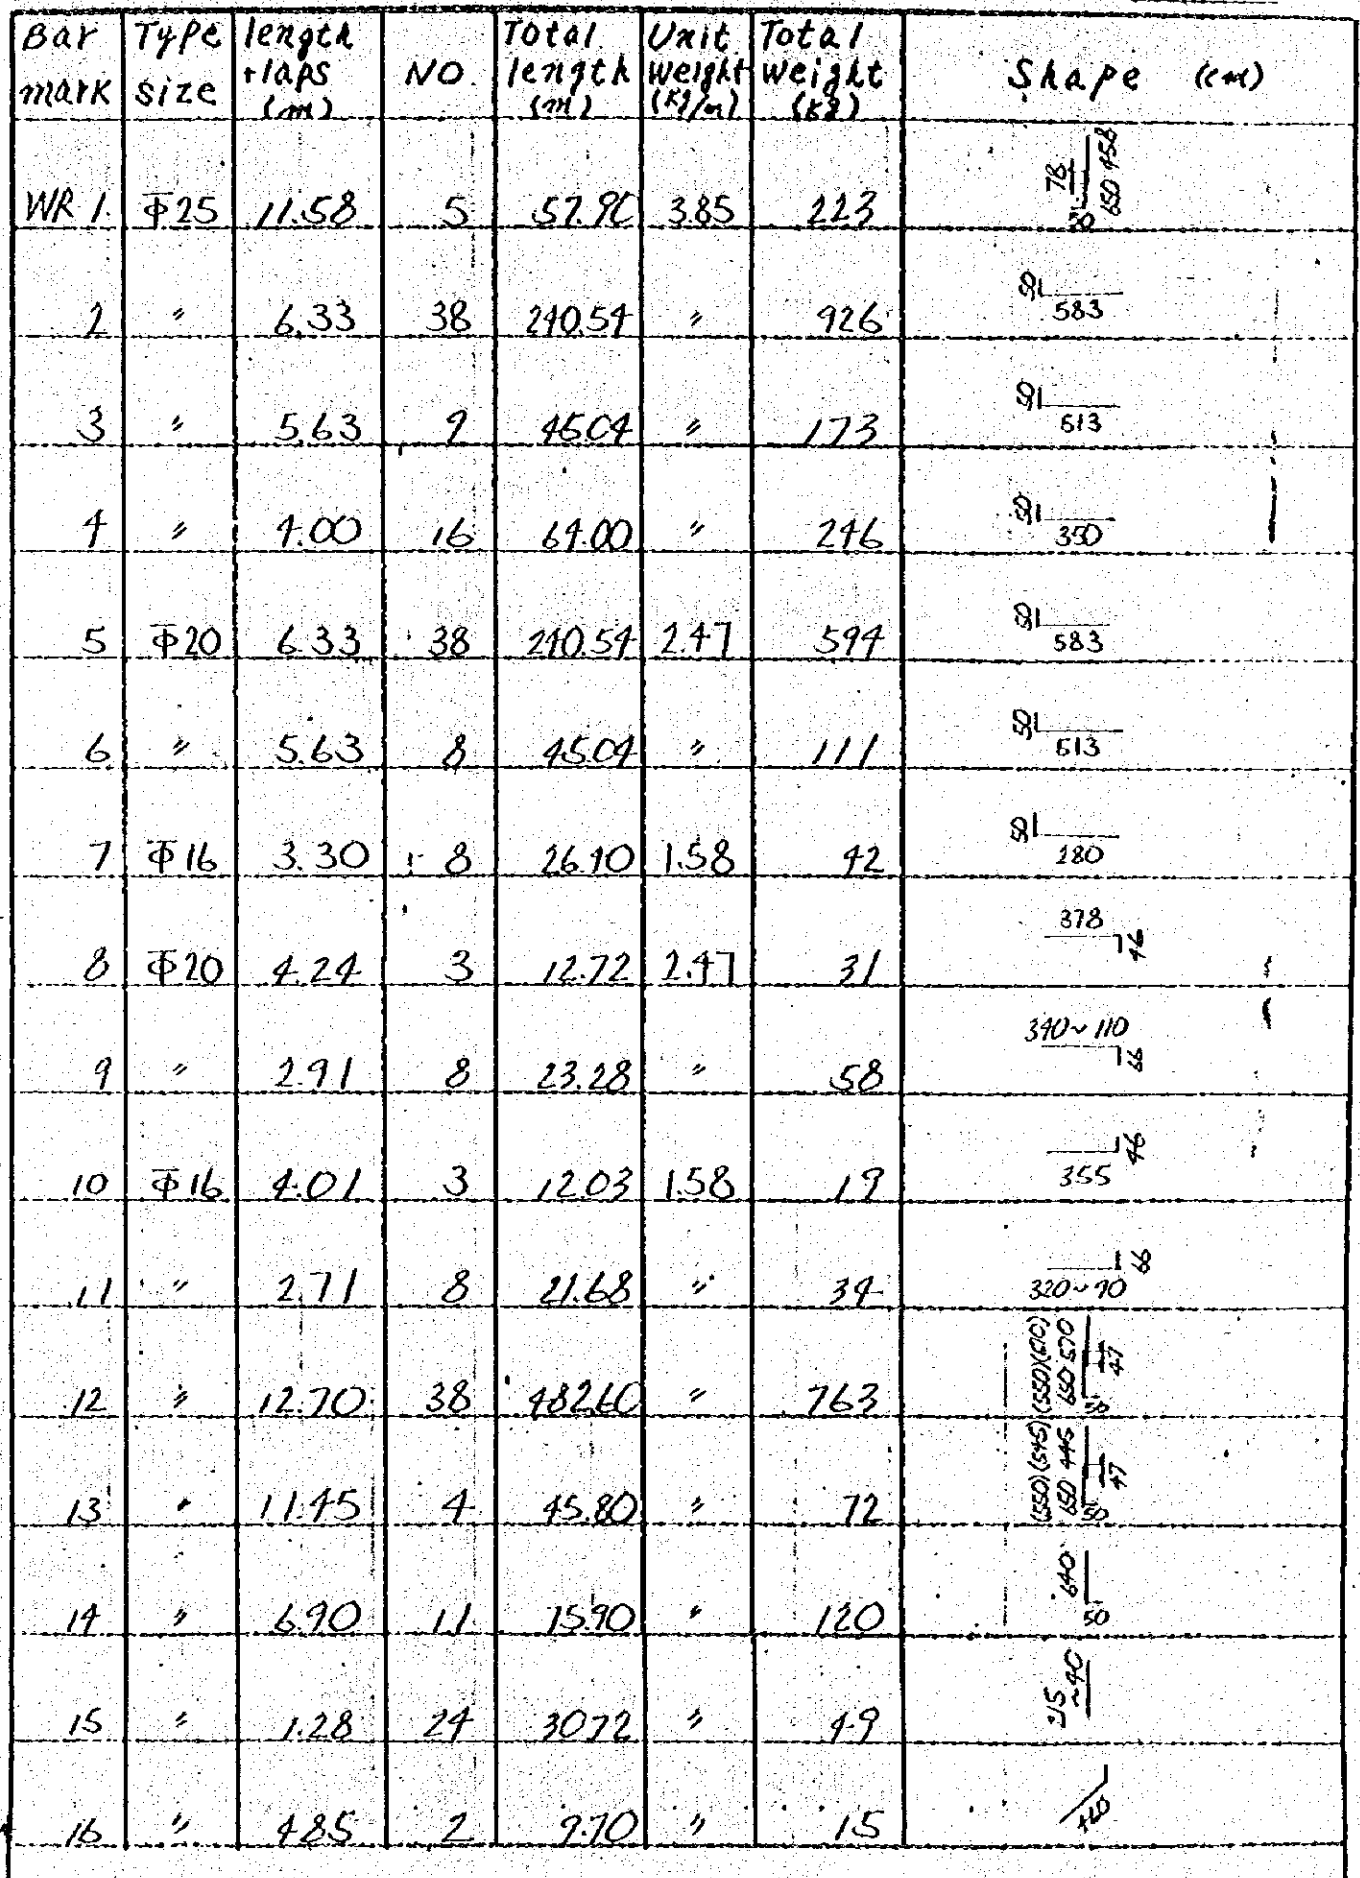 Bar mark | Type size | length +laps (m) | NO. | Total length (m) | Unit weight (kg/m) | Total weight (kg) | Shape (cm)
WR 1 | Φ25 | 11.58 | 5 | 57.90 | 3.85 | 223 | 78 50 650 458
2 | 〃 | 6.33 | 38 | 240.54 | 〃 | 926 | 50 583
3 | 〃 | 5.63 | 9 | 45.04 | 〃 | 173 | 50 513
4 | 〃 | 4.00 | 16 | 64.00 | 〃 | 246 | 50 350
5 | Φ20 | 6.33 | 38 | 240.54 | 2.47 | 594 | 50 583
6 | 〃 | 5.63 | 8 | 45.04 | 〃 | 111 | 50 513
7 | Φ16 | 3.30 | 8 | 26.40 | 1.58 | 42 | 50 280
8 | Φ20 | 4.24 | 3 | 12.72 | 2.47 | 31 | 378 46
9 | 〃 | 2.91 | 8 | 23.28 | 〃 | 58 | 340~110 66
10 | Φ16 | 4.01 | 3 | 12.03 | 1.58 | 19 | 46 355
11 | 〃 | 2.71 | 8 | 21.68 | 〃 | 34 | 66 320~90
12 | 〃 | 12.70 | 38 | 482.60 | 〃 | 763 | (550) 650 570 47 50
13 | 〃 | 11.45 | 4 | 45.80 | 〃 | 72 | (550) (545) 650 445 47 50
14 | 〃 | 6.90 | 11 | 75.90 | 〃 | 120 | 640 50
15 | 〃 | 1.28 | 24 | 30.72 | 〃 | 49 | 215 ~40
16 | 〃 | 4.85 | 2 | 9.70 | 〃 | 15